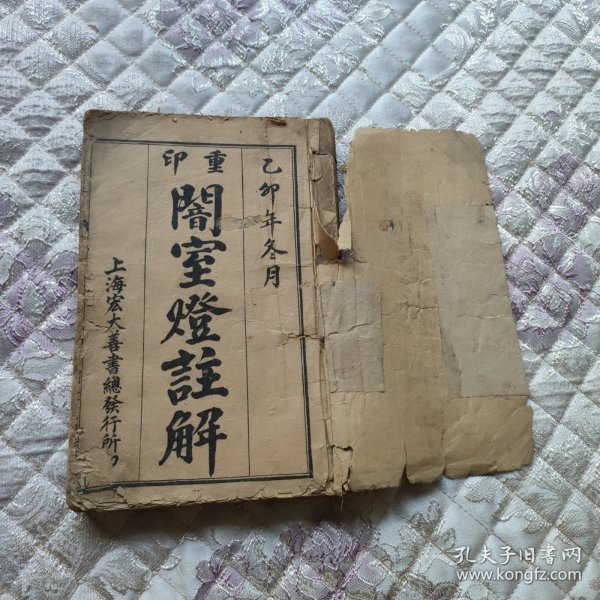 乙卯年冬月
重印
闇室燈註解
上海宏大善書總發行所
孔夫子旧书网
www.kongfz.com